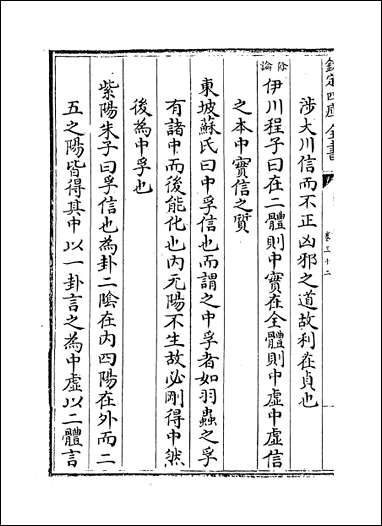 欽定四庫全書
卷三十二
涉大川信而不正凶邪之道故利在貞也
除論
伊川程子曰在二體則中實在全體則中虛中虛信
之本中實信之質
東坡蘇氏曰中孚信也而謂之中孚者如羽蟲之孚
有諸中而後能化也内无陽不生故必剛得中然
後為中孚也
紫陽朱子曰孚信也為卦二陰在内四陽在外而二
五之陽皆得其中以一卦言之為中虛以二體言